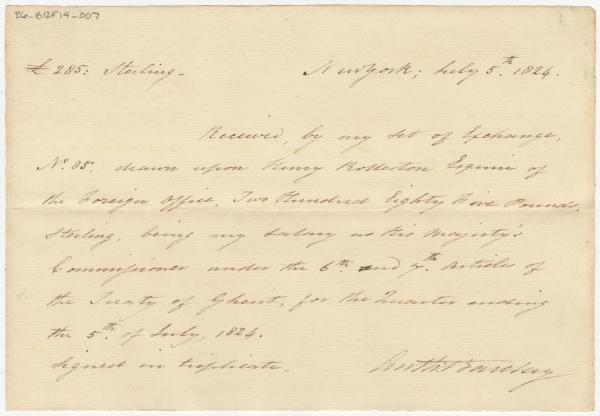 26-B12F14-007
£ 285: Sterling_ New York; July 5.th 1824.
Received, by my set of Exchange,
No. 85, drawn upon Henry Rotterton Esquire of
the Foreign Office, Two Hundred Eighty Five Pounds,
Sterling, being my Salary as His Majesty's
Commissioner under the 6th. and 7th. Articles of
the Treaty of Ghent, for the Quarter ending
the 5th. of July, 1824.
Signed in triplicate. Anth: Barclay